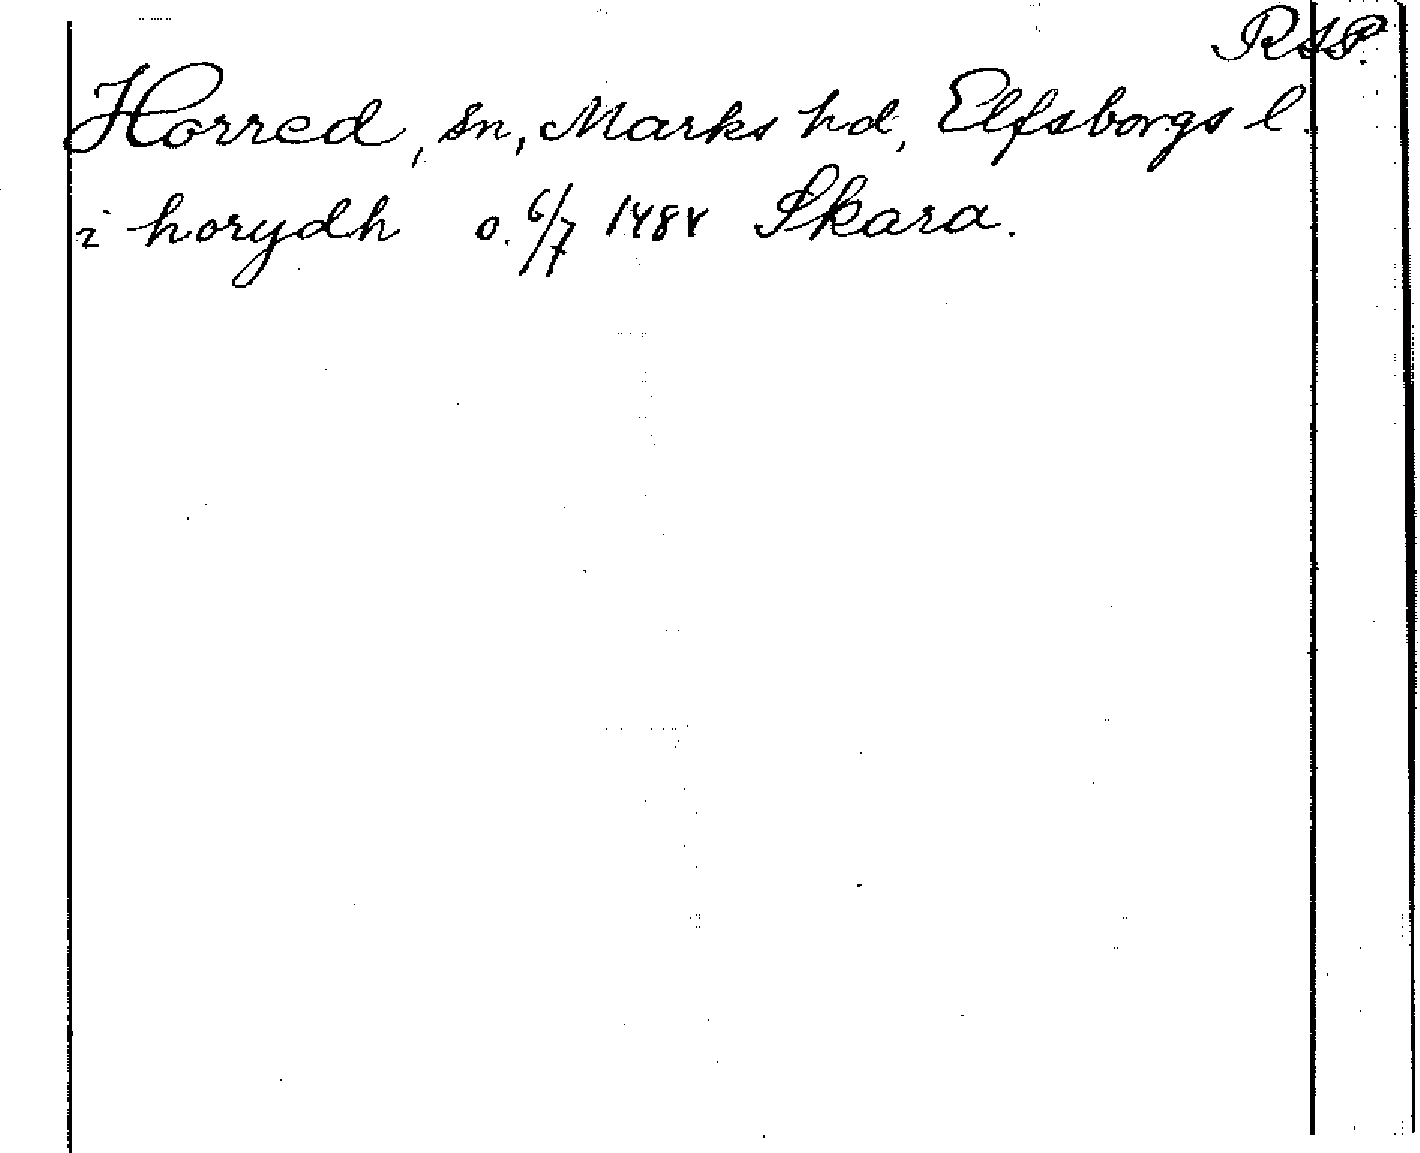 RAP.
Horred, sn, Marks hd, Elfsborgs l.
i horydh o. 6/7 1484 Skara.